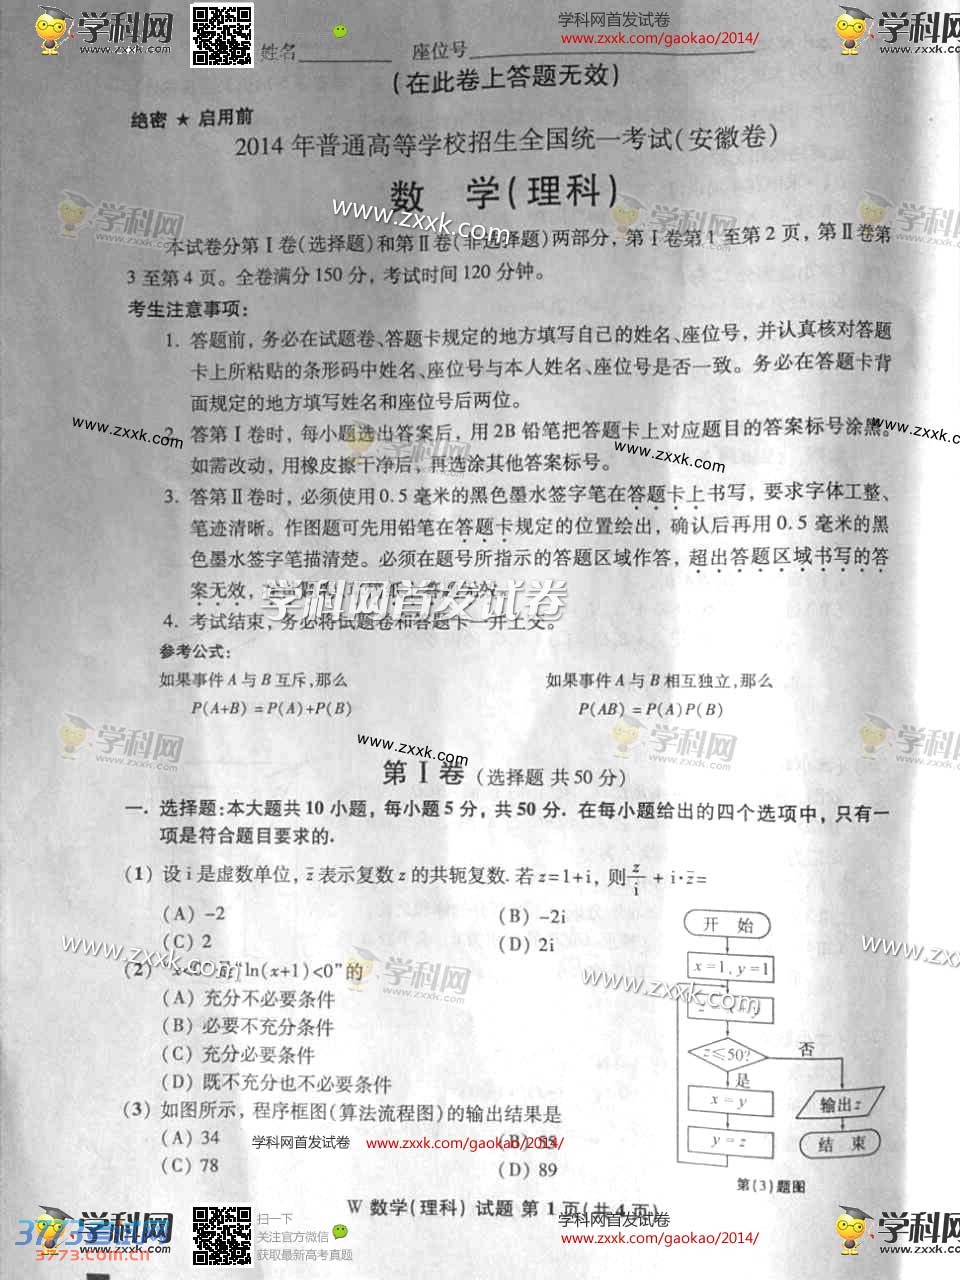 学科网
zxxk.com
学科网首发试卷
www.zxxk.com/gaokao/2014/
学科网
zxxk.com
姓名 座位号
(在此卷上答题无效)
绝密 ★ 启用前
2014 年普通高等学校招生全国统一考试(安徽卷)
数 学(理科)
www.zxxk.com
本试卷分第 I 卷(选择题)和第 II 卷(非选择题)两部分，第 I 卷第 1 至第 2 页，第 II 卷第
3 至第 4 页。全卷满分 150 分，考试时间 120 分钟。
考生注意事项：
1. 答题前，务必在试题卷、答题卡规定的地方填写自己的姓名、座位号，并认真核对答题
卡上所粘贴的条形码中姓名、座位号与本人姓名、座位号是否一致。务必在答题卡背
面规定的地方填写姓名和座位号后两位。
2. 答第 I 卷时，每小题选出答案后，用 2B 铅笔把答题卡上对应题目的答案标号涂黑。
如需改动，用橡皮擦干净后，再选涂其他答案标号。
3. 答第 II 卷时，必须使用 0.5 毫米的黑色墨水签字笔在答题卡上书写，要求字体工整、
笔迹清晰。作图题可先用铅笔在答题卡规定的位置绘出，确认后再用 0.5 毫米的黑
色墨水签字笔描清楚。必须在题号所指示的答题区域作答，超出答题区域书写的答
案无效，
学科网首发试卷
4. 考试结束，务必将试题卷和答题卡一并上交。
参考公式：
如果事件 A 与 B 互斥，那么 如果事件 A 与 B 相互独立，那么
P(A+B) = P(A)+P(B) P(AB) = P(A)P(B)
www.zxxk.com
第 I 卷 (选择题 共 50 分)
一. 选择题：本大题共 10 小题，每小题 5 分，共 50 分. 在每小题给出的四个选项中，只有一
项是符合题目要求的.
(1) 设 i 是虚数单位，z̄ 表示复数 z 的共轭复数. 若 z=1+i，则 z/i + i·z̄=
(A) -2 (B) -2i
(C) 2 (D) 2i
(2) "ln(x+1)<0"的
(A) 充分不必要条件
(B) 必要不充分条件
(C) 充分必要条件
(D) 既不充分也不必要条件
(3) 如图所示，程序框图(算法流程图)的输出结果是
(A) 34 (B) 55
(C) 78 (D) 89
开 始
x=1, y=1
z≤50?
否
是
x = y
y = z
输出 z
结 束
第(3)题图
学科网首发试卷 www.zxxk.com/gaokao/2014/
W 数学(理科) 试题 第 1 页(共 4 页)
3773考试网
3773.com.cn
扫一下
关注官方微信
获取最新高考真题
学科网首发试卷
www.zxxk.com/gaokao/2014/
学科网
zxxk.com